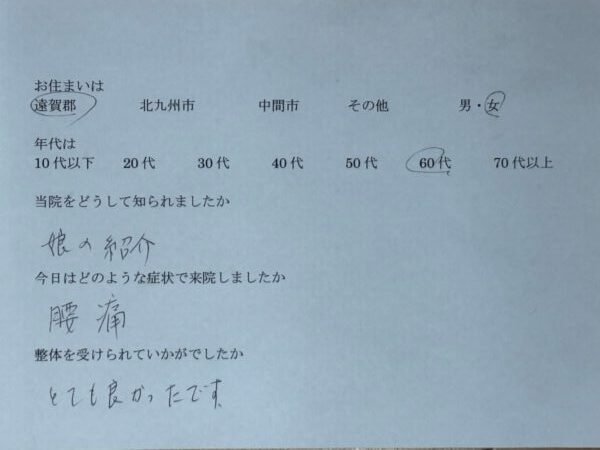 お住まいは
遠賀郡 北九州市 中間市 その他 男・女
年代は
10代以下 20代 30代 40代 50代 60代 70代以上
当院をどうして知られましたか
娘の紹介
今日はどのような症状で来院しましたか
腰痛
整体を受けられていかがでしたか
とても良かったです